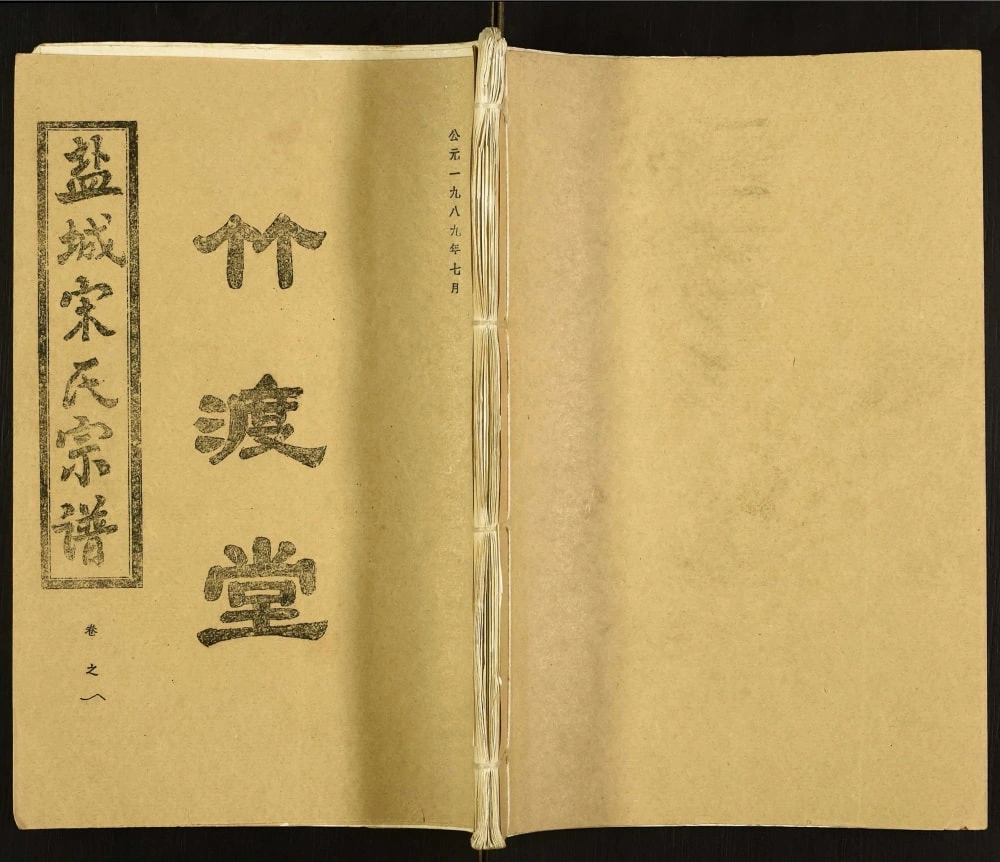 公元一九八九年七月
竹渡堂
盐城宋氏宗谱
卷之八